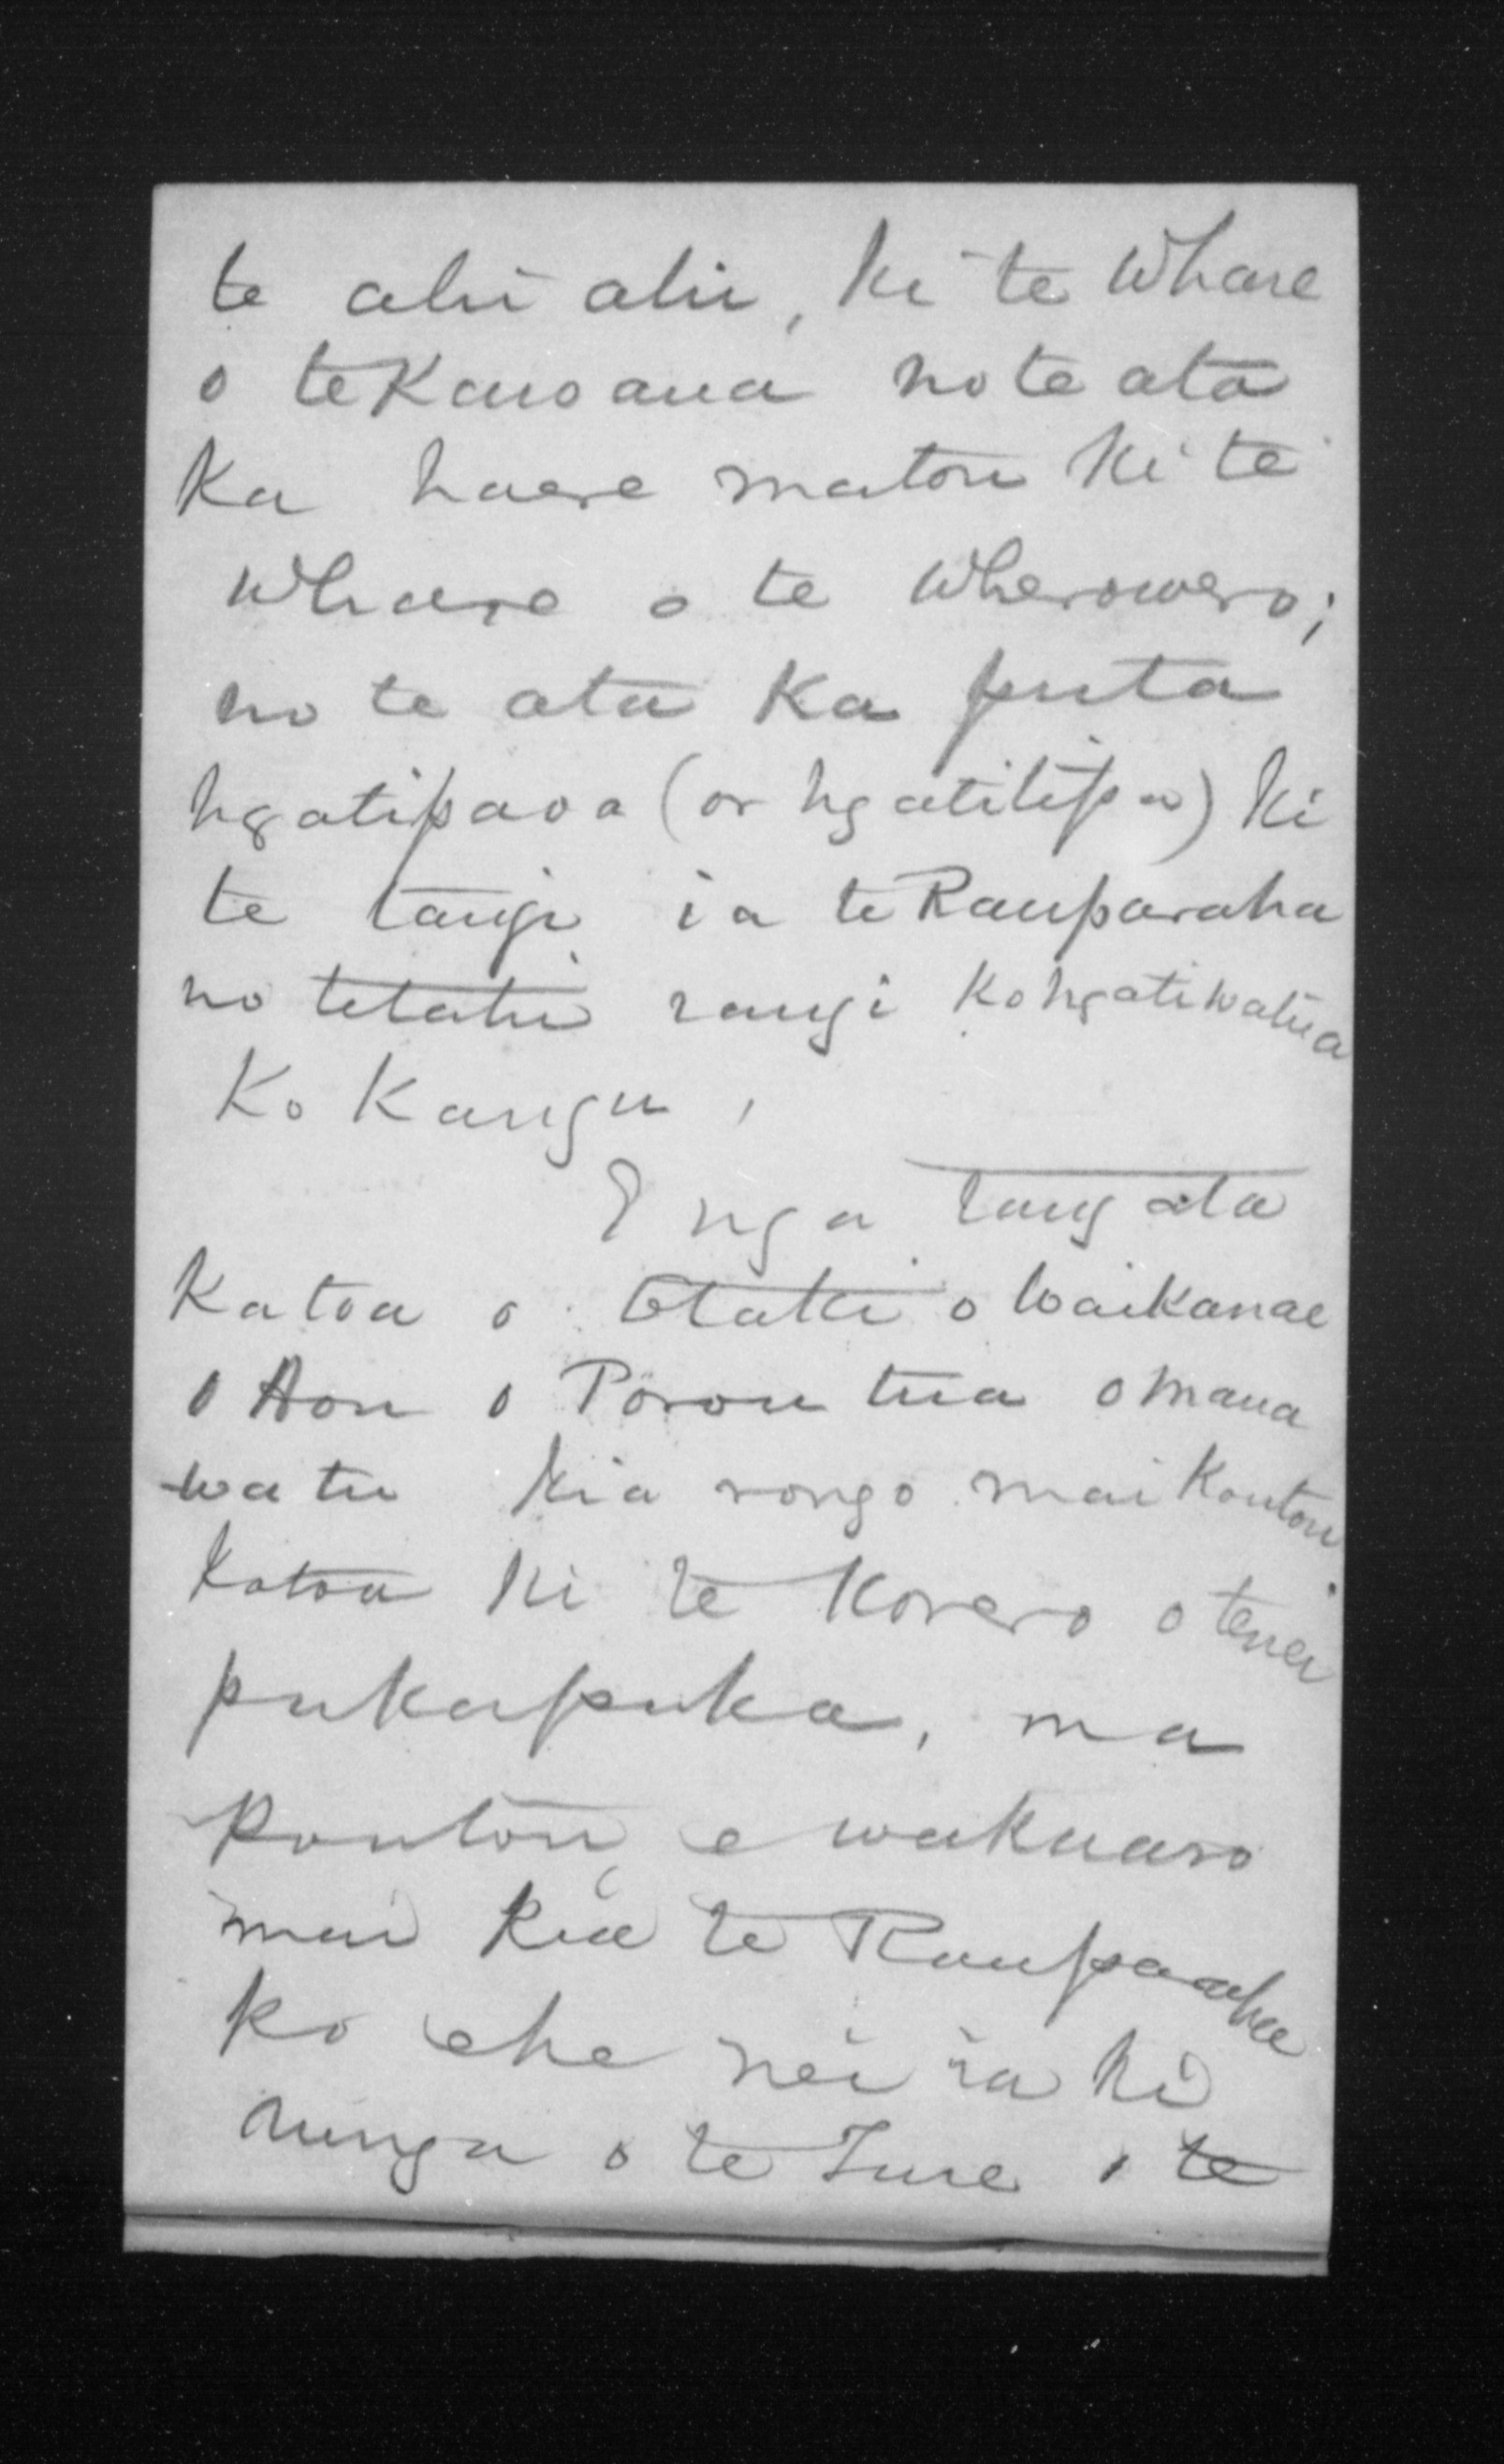 te ahi ahi, ki te Whare
o te Kawana no te ata
Ka haere matou ki te
Whare o te Wherowero;
no te ata Ka puta
Ngatipaoa (or Ngatitipa) ki
te tangi ia te Rauparaha
no tetahi rangi Ko Ngatiwatua
Ko Kangu,
E nga tangata
Katoa o Otaki o Waikanae
o Hou o Porou tua o Mana
watu Kia rongo mai Koutou
Katoa ki te Korero o tenei
pukapuka, ma
Koutou e wakaaro
mai Kia te Rauparaha
Ko ehe nei ia ki
runga o te Ture o te